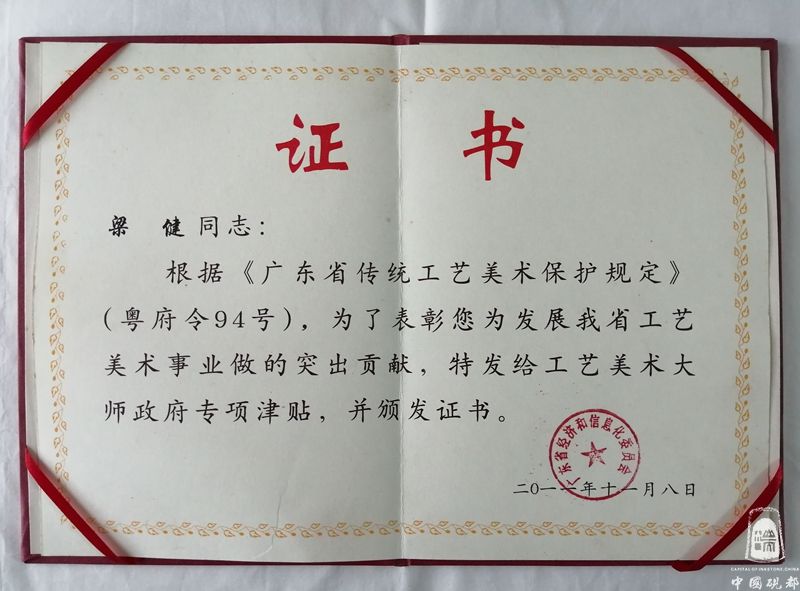 证 书
梁 健同志：
根据《广东省传统工艺美术保护规定》
（粤府令94号），为了表彰您为发展我省工艺
美术事业做的突出贡献，特发给工艺美术大
师政府专项津贴，并颁发证书。
广东省经济和信息化委员会
二〇一一年十一月八日
CAPITAL OF INKSTONE, CHINA
中國硯都